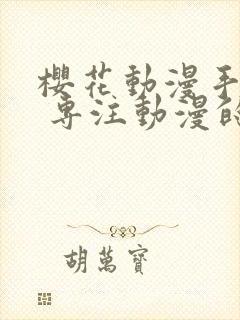 櫻花動漫手
專注動漫的
胡萬寶